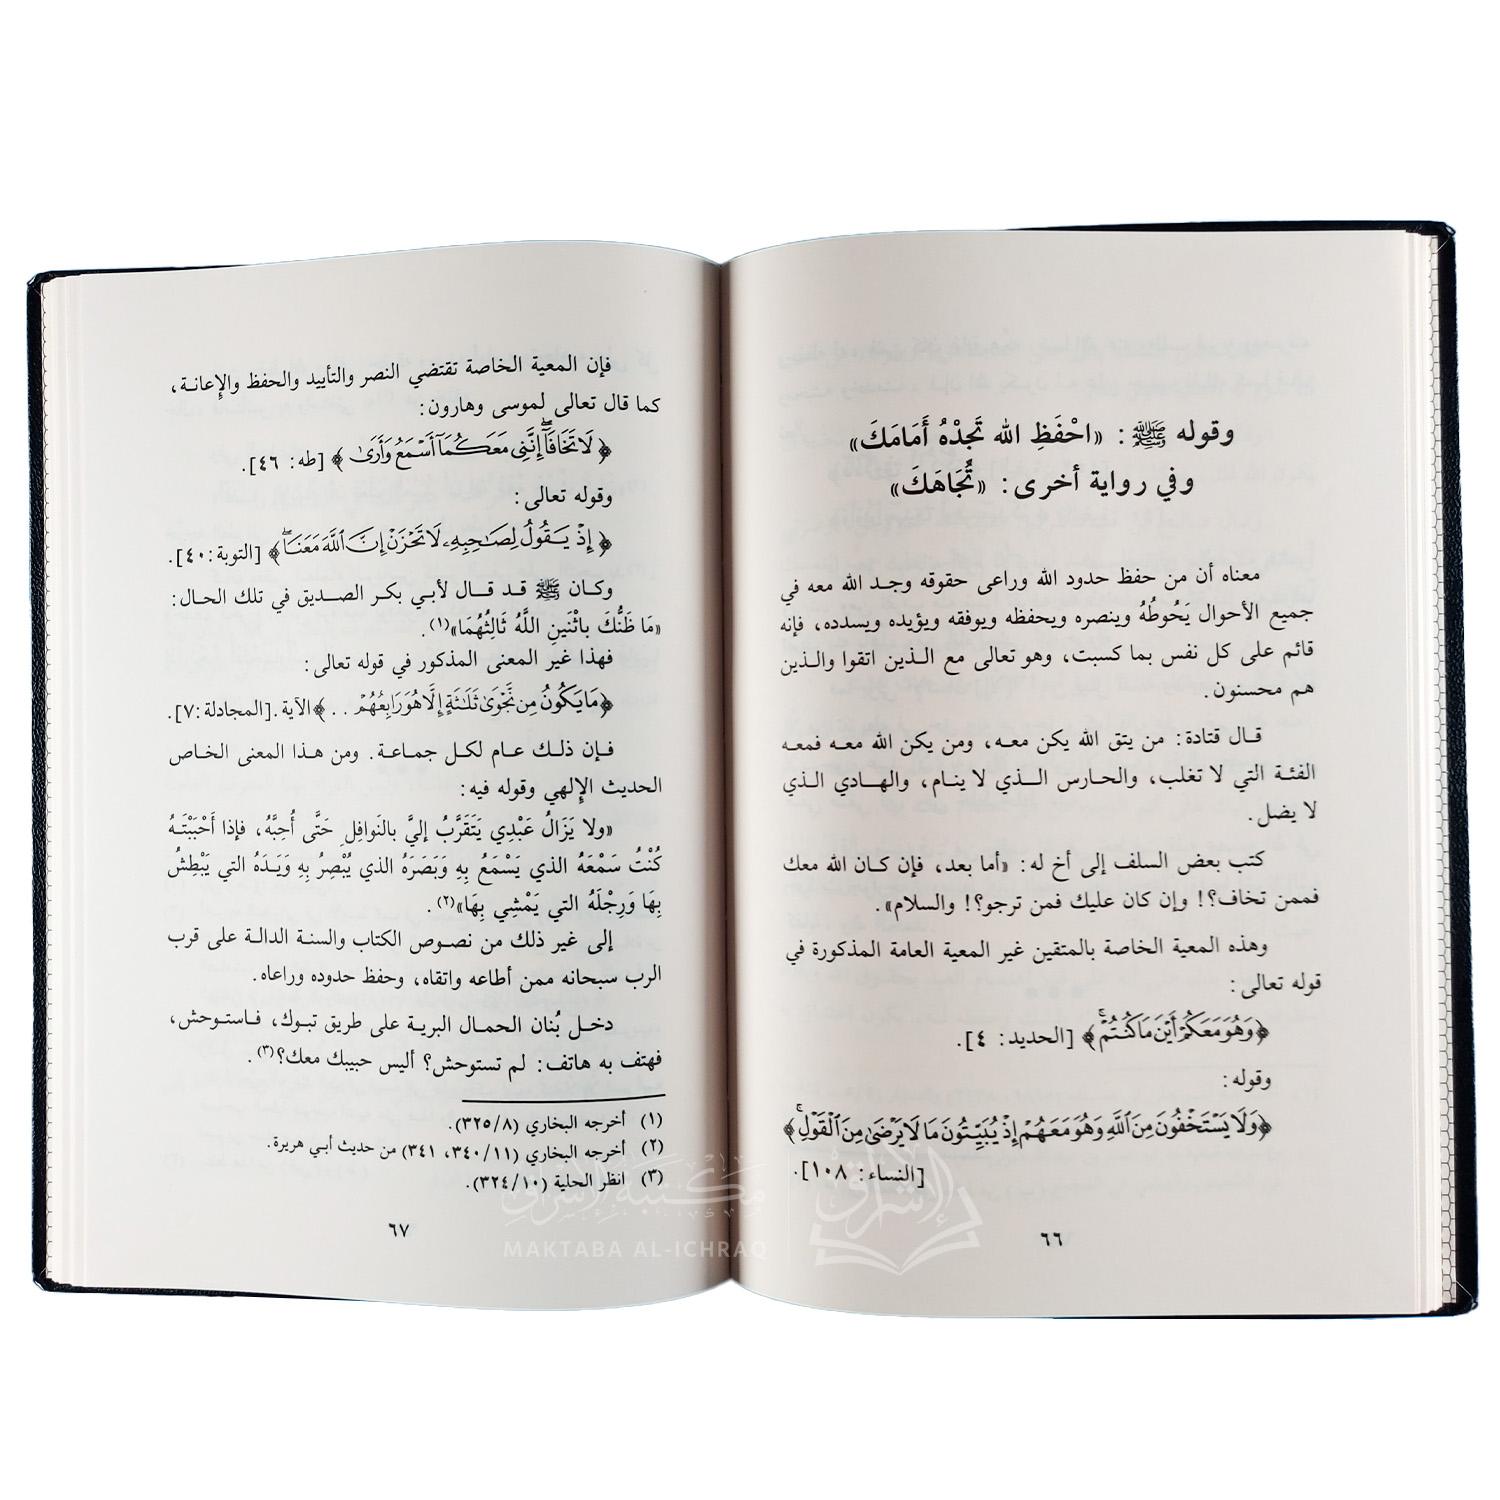 وقوله ﷺ: «احْفَظِ الله تَجِدْهُ أَمَامَكَ»
وفي رواية أخرى: «تُجَاهَكَ»
معناه أن من حفظ حدود الله وراعى حقوقه وجد الله معه في
جميع الأحوال يَحُوطُهُ وينصره ويحفظه ويوفقه ويؤيده ويسدده، فإنه
قائم على كل نفس بما كسبت، وهو تعالى مع الذين اتقوا والذين
هم محسنون.
قال قتادة: من يتق الله يكن معه، ومن يكن الله معه فمعه
الفئة التي لا تغلب، والحارس الذي لا ينام، والهادي الذي
لا يضل.
كتب بعض السلف إلى أخ له: «أما بعد، فإن كان الله معك
فممن تخاف؟! وإن كان عليك فمن ترجو؟! والسلام».
وهذه المعية الخاصة بالمتقين غير المعية العامة المذكورة في
قوله تعالى:
﴿وَهُوَ مَعَكُمْ أَيْنَ مَا كُنتُمْ﴾ [الحديد: ٤].
وقوله:
﴿وَلَا يَسْتَخْفُونَ مِنَ ٱللَّهِ وَهُوَ مَعَهُمْ إِذْ يُبَيِّتُونَ مَا لَا يَرْضَىٰ مِنَ ٱلْقَوْلِ﴾
[النساء: ١٠٨].
٦٦
فإن المعية الخاصة تقتضي النصر والتأييد والحفظ والإعانة،
كما قال تعالى لموسى وهارون:
﴿لَا تَخَافَا إِنَّنِي مَعَكُمَا أَسْمَعُ وَأَرَىٰ﴾ [طه: ٤٦].
وقوله تعالى:
﴿إِذْ يَقُولُ لِصَاحِبِهِ لَا تَحْزَنْ إِنَّ ٱللَّهَ مَعَنَا﴾ [التوبة: ٤٠].
وكان ﷺ قد قال لأبي بكر الصديق في تلك الحال:
«مَا ظَنُّكَ بِاثْنَينِ اللَّهُ ثَالِثُهُمَا»(١).
فهذا غير المعنى المذكور في قوله تعالى:
﴿مَا يَكُونُ مِن نَّجْوَىٰ ثَلَـٰثَةٍ إِلَّا هُوَ رَابِعُهُمْ . .﴾ الآية. [المجادلة: ٧].
فإن ذلك عام لكل جماعة. ومن هذا المعنى الخاص
الحديث الإلهي وقوله فيه:
«ولا يَزَالُ عَبْدِي يَتَقَرَّبُ إليَّ بالنَوافِلِ حَتَّى أُحِبَّهُ، فإذا أَحْبَبْتَهُ
كُنْتُ سَمْعَهُ الذي يَسْمَعُ بِهِ وَبَصَرَهُ الذي يُبْصِرُ بِهِ وَيَدَهُ التي يَبْطشُ
بِهَا وَرِجْلَهُ التي يَمْشِي بِهَا»(٢).
إلى غير ذلك من نصوص الكتاب والسنة الدالة على قرب
الرب سبحانه ممن أطاعه واتقاه، وحفظ حدوده وراعاه.
دخل بُنان الحمال البرية على طريق تبوك، فاستوحش،
فهتف به هاتف: لم تستوحش؟ أليس حبيبك معك؟(٣).
(١) أخرجه البخاري (٣٢٥/٨).
(٢) أخرجه البخاري (٣٤٠/١١، ٣٤١) من حديث أبي هريرة.
(٣) انظر الحلية (٣٢٤/١٠).
٦٧
مكتبة الإشراق
MAKTABA AL-ICHRAQ
الإشراق